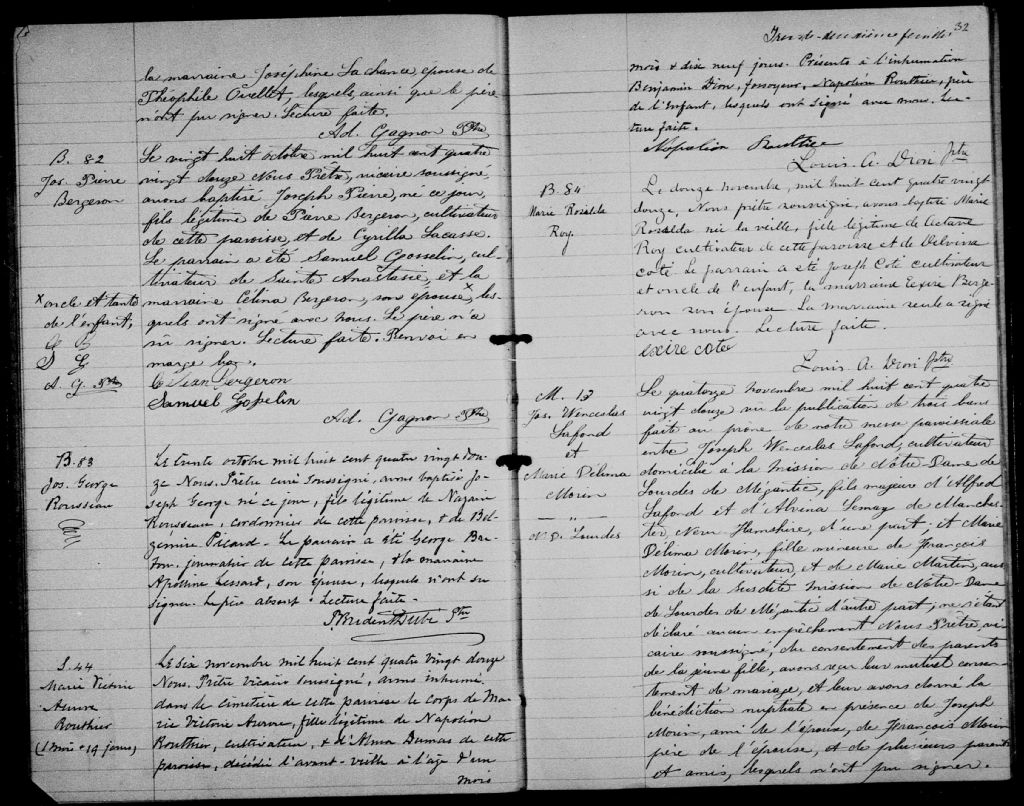 la marraine Joséphine Lachance, épouse de
Théophile Ouellet, lesquels, ainsi que le père
n'ont pu signer. Lecture faite.
Ad. Gagnon Ptre
B. 82
Jos. Pierre
Bergeron
Le vingt huit octobre mil huit cent quatre
vingt douze Nous Prêtre, vicaire soussigné,
avons baptisé Joseph Pierre, né ce jour,
fils légitime de Pierre Bergeron, cultivateur
de cette paroisse, et de Cyrilla Lacasse.
Le parrain a été Samuel Gosselin, cul-
tivateur de Sainte Anastasie, et la
x oncle et tante
marraine Célina Bergeron, son épouse x, les-
de l'enfant,
quels ont signé avec nous. Le père n'a
su signer. Lecture faite. Renvoi en
S G
marge bon.
A. G. Ptre
Bergeron
Samuel Gopelin
Ad. Gagnon Ptre
B. 83
Jos. George
Rousseau
Le trente octobre mil huit cent quatre vingt dou-
ze Nous Prêtre curé soussigné, avons baptisé Jo-
seph George né ce jour, fils légitime de Nazaire
Rousseau, cordonnier de cette paroisse, & de Bel-
zémire Picard. Le parrain a été George Bre-
ton journalier de cette paroisse, & la marraine
Apolline Lessard, son épouse, lesquels n'ont su
signer. Le père absent. Lecture faite.
P. Prudent Dubé Ptre
S. 44
Marie Victorie
Aurore
Routhier
(1 mois & 19 jours)
Le six novembre mil huit cent quatre vingt douze
Nous Prêtre vicaire soussigné, avons inhumé
dans le cimetière de cette paroisse le corps de Ma-
rie Victorie Aurore, fille légitime de Napoléon
Routhier, cultivateur, & d'Alma Dumas de cette
paroisse, décédée l'avant-veille à l'âge d'un
mois
Trente-deuxième feuillet 32
mois & dix neuf jours. Présents à l'inhumation
Benjamin Dion, fossoyeur, Napoléon Routhier, père
de l'Enfant, lesquels ont signé avec nous. Lec-
ture faite.
Napoléon Routhier
Louis. A. Dion Ptre
B. 84
Marie Rosilda
Roy.
Le douze novembre, mil huit cent quatre vingt
douze, Nous prêtre soussigné, avons baptisé Marie
Rosilda née la veille, fille légitime de Octave
Roy cultivateur de cette paroisse et de Delvina
Coté Le parrain a été Joseph Coté cultivateur
et oncle de l'enfant, la marraine Exire Berge-
ron son épouse. La marraine seule a signé
avec nous. Lecture faite.
Exire Coté
Louis. A. Dion Ptre
M. 13
Jos. Wenceslas
Lafond
et
Marie Délima
Morin
N. D. Lourdes
Le quatorze novembre mil huit cent quatre
vingt douze vu la publication de trois bans
faite au prône de notre messe paroissiale
entre Joseph Wenceslas Lafond, cultivateur
domicilié à la mission de Notre-Dame de
Lourdes de Mégantic, fils majeur d'Alfred
Lafond et d'Alvina Lemay de Manches-
ter, New Hamshire, d'une part; et Marie
Délima Morin, fille mineure de François
Morin, cultivateur, et de Marie Martin, aus-
si de la susdite mission de Notre-Dame
de Lourdes de Mégantic d'autre part; ne s'étant
déclaré aucun empêchement Nous Prêtre, vi-
caire soussigné, du consentement des parents
de la jeune fille, avons reçu leur mutuel consen-
tement de mariage, et leur avons donné la
bénédiction nuptiale en présence de Joseph
Morin, ami de l'époux, de François Morin
père de l'épouse, et de plusieurs parents
et amis, lesquels n'ont pu signer.